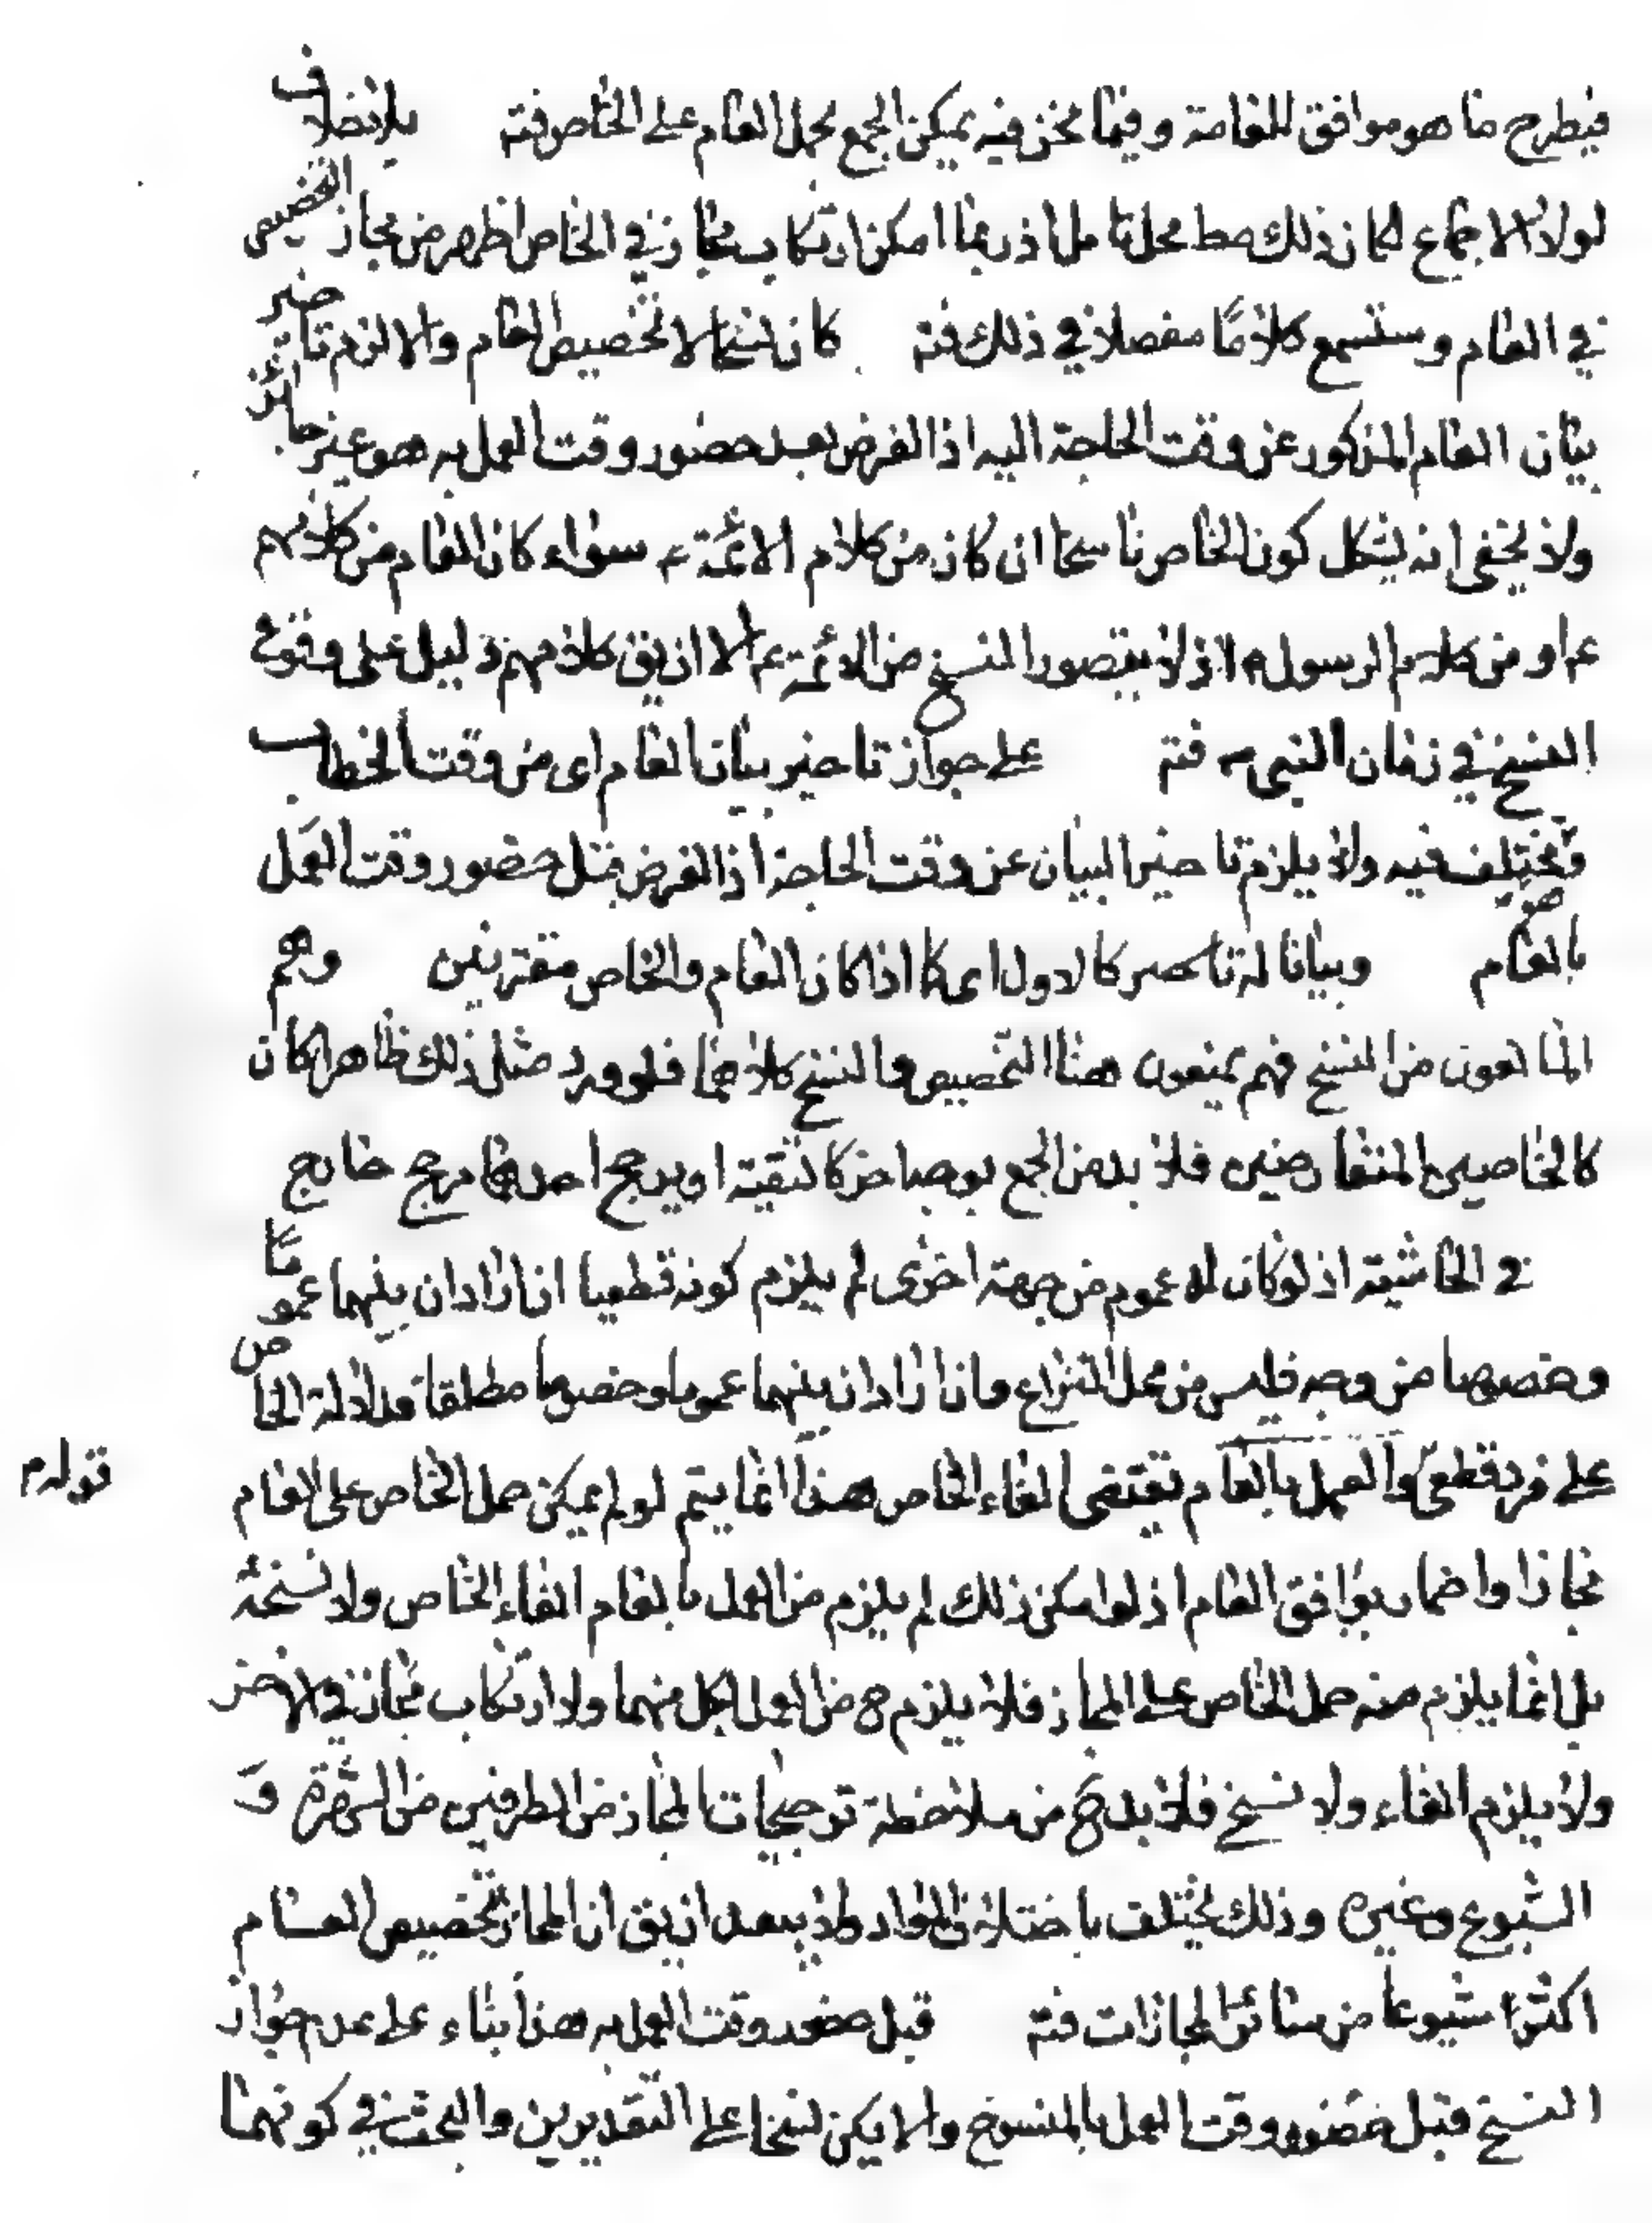 فيطرح ما هو موافق للعامة وفيما نحن فيه يمكن الجمع بحمل العام على الخاص فتم بلا خلاف
لولا الاجماع لكان ذلك محل تامل اذ ربما امكن ارتكاب مجاز في الخاص اظهر من مجاز التخصيص
في العام وستسمع كلاما مفصلا في ذلك فتم كان نسخا لا تخصيص العام والا لزم تاخير
بيان العام المذكور عن وقت الحاجة اليه اذ الفرض بعد حضور وقت العمل به هو غير جائز
ولا يخفى انه يشكل كون الخاص ناسخا ان كان من كلام الائمة ع سواء كان العام من كلامهم
ع او من كلام الرسول ص اذ لا يتصور النسخ من الائمة ع الا ان يق كلامهم دليل على وقوع
النسخ في زمان النبي ص فتم على جواز تاخير بيان العام اى من وقت الخطاب
ومختلف فيه ولا يلزم تاخير البيان عن وقت الحاجة اذ الفرض قبل حضور وقت العمل
بالعام وبيانا له كالاول اى كما اذا كان العام والخاص مقترنين وهم
المانعون من النسخ فهم يمنعون هنا التخصيص والنسخ كلاهما فلو ورد مثل ذلك ظاهرا كان
كالخاصين المتعارضين فلا بد من الجمع بوجه اخر كالتقية او يرجح احدهما مرجح خارج
في الحاشية اذ لو كان له عموم من جهة اخرى لم يلزم كونه قطعيا ان اراد ان بينهما عموما
وخصوصا من وجه فليس من محل النزاع وان اراد ان بينهما عموما وخصوصا مطلقا فدلالة الخاص
على فرد قطعى والعمل بالعام يقتضى الغاء الخاص هذا انما يتم لو لم يمكن حمل الخاص على العام
قوله م
مجازا واضمار يوافق العام اذ لو امكن ذلك لم يلزم من العمل بالعام الغاء الخاص ولا نسخه
بل انما يلزم منه حمل الخاص على المجاز فلا يلزم ح من العمل بكل منهما ولا ارتكاب مجاز في الاخر
ولا يلزم الغاء ولا نسخ فلا بد ح من ملاحظة ترجيحات المجاز من الطرفين من الشهرة و
الشيوع وغيره وذلك يختلف باختلاف الموارد ولا يبعد ان يق ان المجاز تخصيص العام
اكثر شيوعا من سائر المجازات فتم قبل حضور وقت العمل به هذا بناء على عدم جواز
النسخ قبل حضور وقت العمل بالمنسوخ والا يكن نسخا على التقديرين والبحث في كونهما